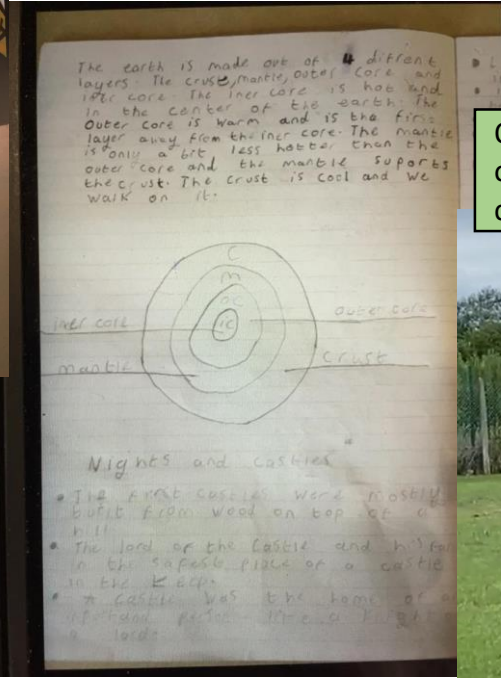 The earth is made out of 4 difrent
layers. The crust, mantle, outer core and
iner core. The iner core is hot and
in the center of the earth. The
Outer core is warm and is the first
layer away from the iner core. The mantle
is only a bit less hotter than the
outer core and the mantle suports
the crust. The crust is cool and we
walk on it.
C
m
oc
ic
iner core
outer core
mantle
crust
Nights and castles
• The first castles were mostly
built from wood on top of a
hill
• The lord of the castle and his
in the safest place of a castle
in the keep.
• A castle was the home of
person like a knight
lord.